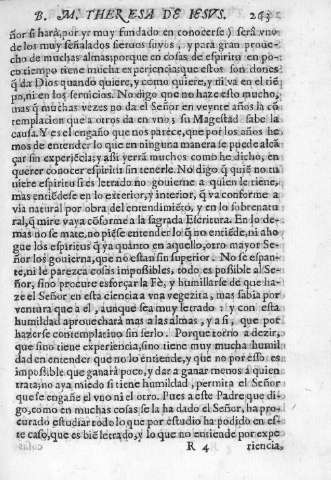 B. M. THERESA DE IESVS. 263
ñor si hará, por yr muy fundado en conocerse) será vno
de los muy señalados sieruos suyos, y para gran proue-
cho de muchas almas: porque en cosas de espiritu en po-
co tiempo tiene mucha experiencia: que estos son dones
q̃ da Dios quando quiere, y como quiere, y ni va en el tié-
po, ni en los seruicios. No digo que no haze esto mucho,
mas q̃ muchas vezes no da el Señor en veynte años la cõ-
templacion que a otros da en vno; su Magestad sabe la
causa. Y es el engaño que nos parece, que por los años he
mos de entender lo que en ninguna manera se puede alcá
çar sin experiécia; y assi yerrã muchos como he dicho, en
querer conocer espiritu sin tenerle. No digo q̃ quié no tu
uiere espiritu si es letrado no gouierne a quien le tiene,
mas entiédese en lo exterior, y interior, q̃ va conforme a
via natural por obra del entendimiéto, y en lo sobrenatu
ral, q̃ mire vaya cõforme a la sagrada Escritura. En lo de-
mas no se mate, no piése entender lo q̃ no entiéde, ni aho
gue los espiritus q̃ ya quanto en aquello, otro mayor Se
ñor los gouierna, que no estan sin superior. No se espan-
te, ni le parezca cosas impossibles, todo es possible al Se
ñor, sino procure esforçar la Fè, y humillarse de que ha-
ze el Señor en esta ciencia a vna vegezita, mas sabia por
ventura que a el, aunque sea muy letrado: y con esta
humildad aprouechará mas a las almas, y a si, que por
hazerse contemplatiuo sin serlo. Porque torno a dezir,
que sino tiene experiencia, sino tiene muy mucha humil
dad en entender que no lo entiende, y que no por esso es
impossible que ganará poco, y dar a ganar menos a quien
trata; no aya miedo si tiene humildad, permita el Señor
que se engañe el vno ni el otro. Pues a este Padre que di-
go, como en muchas cosas se la ha dado el Señor, ha pro-
curado estudiar todo lo que por estudio ha podido en es-
te caso, que es bié letrado, y lo que no entiende por expe
R 4 riencia,